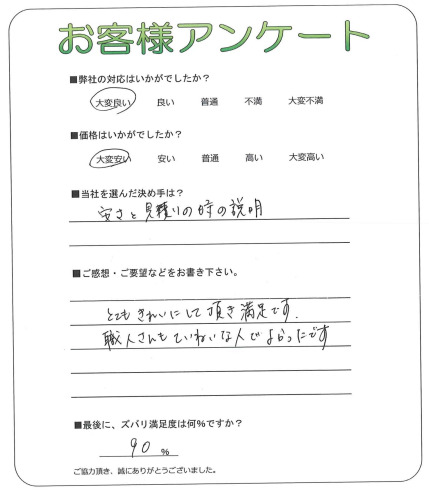 お客様アンケート
■弊社の対応はいかがでしたか？
大変良い 良い 普通 不満 大変不満
■価格はいかがでしたか？
大変安い 安い 普通 高い 大変高い
■当社を選んだ決め手は？
安さと見積りの時の説明
■ご感想・ご要望などをお書き下さい。
とてもきれいにして頂き満足です.
職人さんもていねいな人でよかったです
■最後に、ズバリ満足度は何％ですか？
90 %
ご協力頂き、誠にありがとうございました。